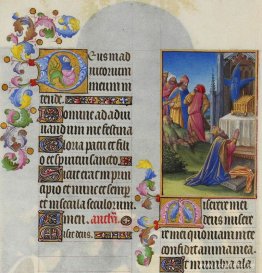 Deus in ad
iutorium
meum in
tende.
Domine ad adiu
uandum me festina
Gloria patri et fili
o et spiritui sancto.
Sicut erat in princi
pio et nunc et semp
et in secula seculorum
Amen. anth
deus.
Miserere mei
deus misere
re mei quoniam in te
confidit anima mea.
Et in umbra ala